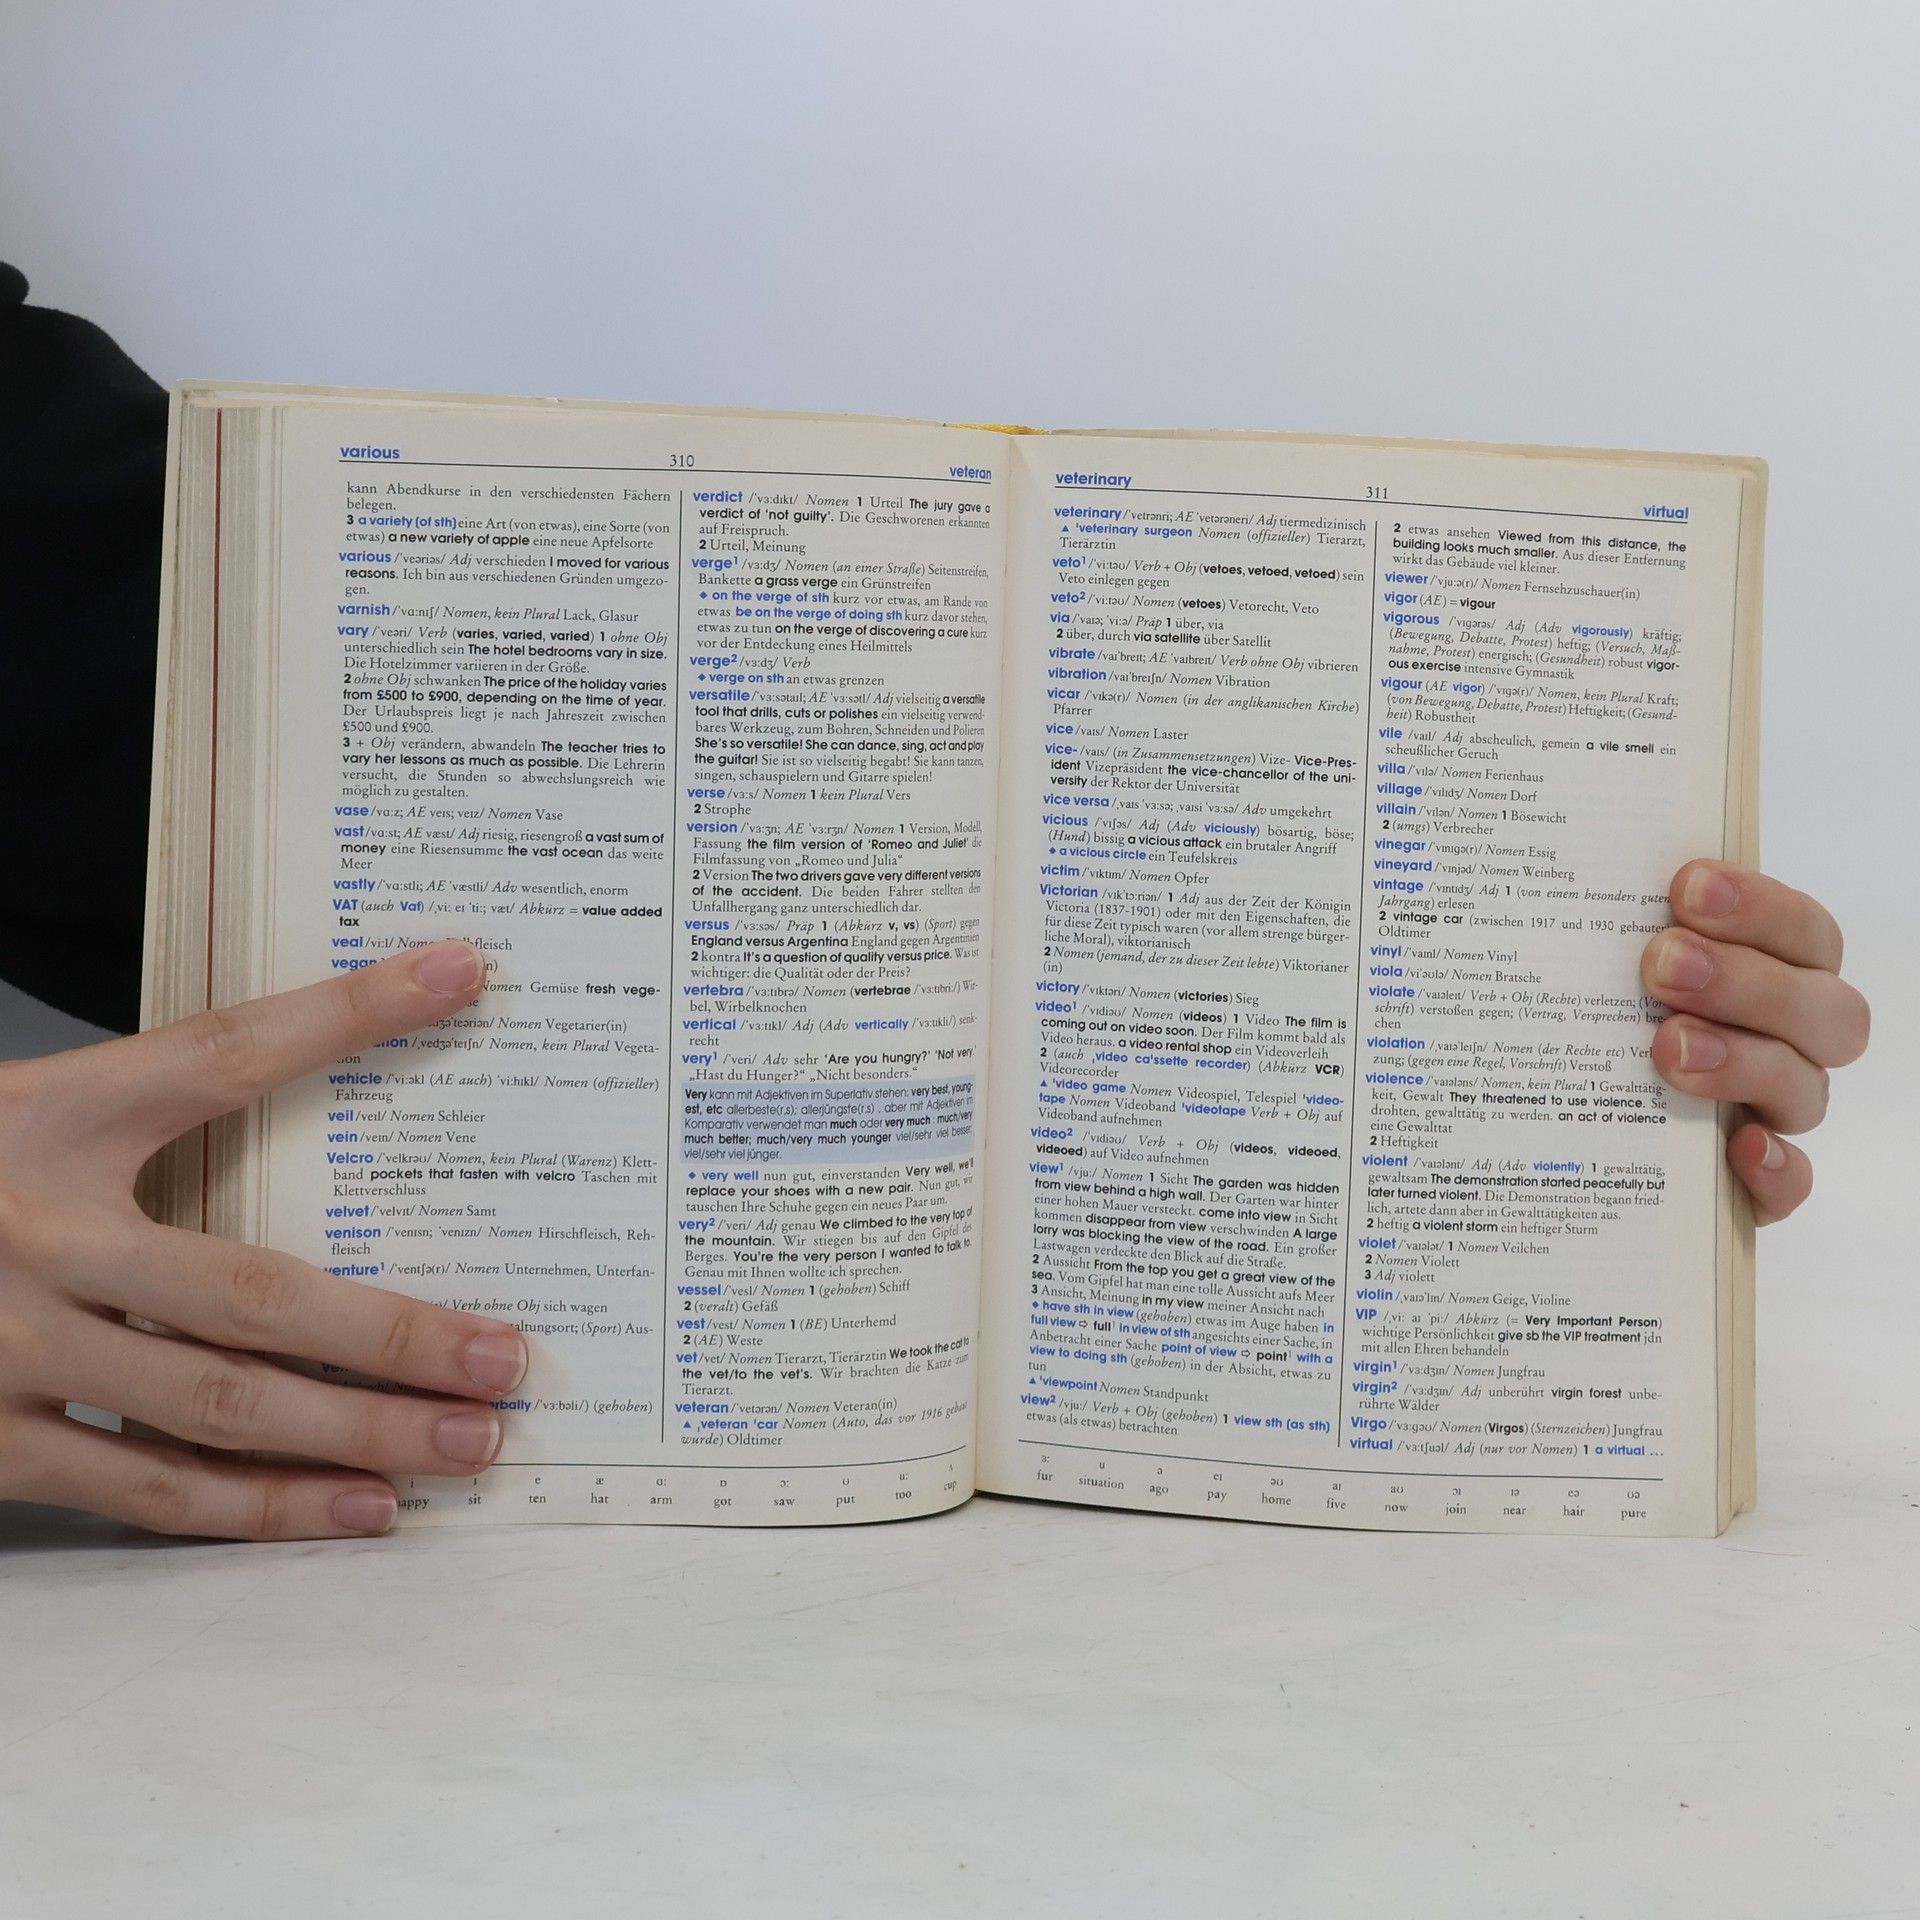 various
310
veteran
kann Abendkurse in den verschiedensten Fächern
belegen.
3 a variety (of sth) eine Art (von etwas), eine Sorte (von
etwas) a new variety of apple eine neue Apfelsorte
various /ˈveəriəs/ Adj verschieden I moved for various
reasons. Ich bin aus verschiedenen Gründen umgezo-
gen.
varnish /ˈvɑːnɪʃ/ Nomen, kein Plural Lack, Glasur
vary /ˈveəri/ Verb (varies, varied, varied) 1 ohne Obj
unterschiedlich sein The hotel bedrooms vary in size.
Die Hotelzimmer variieren in der Größe.
2 ohne Obj schwanken The price of the holiday varies
from £500 to £900, depending on the time of year.
Der Urlaubspreis liegt je nach Jahreszeit zwischen
£500 und £900.
3 + Obj verändern, abwandeln The teacher tries to
vary her lessons as much as possible. Die Lehrerin
versucht, die Stunden so abwechslungsreich wie
möglich zu gestalten.
vase /vɑːz; AE veɪs; veɪz/ Nomen Vase
vast /vɑːst; AE væst/ Adj riesig, riesengroß a vast sum of
money eine Riesensumme the vast ocean das weite
Meer
vastly /ˈvɑːstli; AE ˈvæstli/ Adv wesentlich, enorm
VAT (auch Vat) /ˌviː eɪ ˈtiː; væt/ Abkürz = value added
tax
veal /viːl/
vegan
Nomen Gemüse fresh vege-
Nomen Vegetarier(in)
/ˌvedʒəˈteɪʃn/ Nomen, kein Plural Vegeta-
tion
vehicle /ˈviːəkl (AE auch) ˈviːhɪkl/ Nomen (offizieller)
Fahrzeug
veil /veɪl/ Nomen Schleier
vein /veɪn/ Nomen Vene
Velcro /ˈvelkrəʊ/ Nomen, kein Plural (Warenz) Klett-
band pockets that fasten with velcro Taschen mit
Klettverschluss
velvet /ˈvelvɪt/ Nomen Samt
venison /ˈvenɪsn; ˈvenɪzn/ Nomen Hirschfleisch, Reh-
fleisch
venture¹ /ˈventʃə(r)/ Nomen Unternehmen, Unterfan-
Verb ohne Obj sich wagen
(Sport) Aus-
/ˈvɜːbəli/) (gehoben)
verdict /ˈvɜːdɪkt/ Nomen 1 Urteil The jury gave a
verdict of 'not guilty'. Die Geschworenen erkannten
auf Freispruch.
2 Urteil, Meinung
verge¹ /vɜːdʒ/ Nomen (an einer Straße) Seitenstreifen,
Bankette a grass verge ein Grünstreifen
◆ on the verge of sth kurz vor etwas, am Rande von
etwas be on the verge of doing sth kurz davor stehen,
etwas zu tun on the verge of discovering a cure kurz
vor der Entdeckung eines Heilmittels
verge² /vɜːdʒ/ Verb
◆ verge on sth an etwas grenzen
versatile /ˈvɜːsətaɪl; AE ˈvɜːsətl/ Adj vielseitig a versatile
tool that drills, cuts or polishes ein vielseitig verwend-
bares Werkzeug, zum Bohren, Schneiden und Polieren
She's so versatile! She can dance, sing, act and play
the guitar! Sie ist so vielseitig begabt! Sie kann tanzen,
singen, schauspielern und Gitarre spielen!
verse /vɜːs/ Nomen 1 kein Plural Vers
2 Strophe
version /ˈvɜːʃn; AE ˈvɜːrʒn/ Nomen 1 Version, Modell,
Fassung the film version of 'Romeo and Juliet' die
Filmfassung von „Romeo und Julia“
2 Version The two drivers gave very different versions
of the accident. Die beiden Fahrer stellten den
Unfallhergang ganz unterschiedlich dar.
versus /ˈvɜːsəs/ Präp 1 (Abkürz v, vs) (Sport) gegen
England versus Argentina England gegen Argentinien
2 kontra It's a question of quality versus price. Was ist
wichtiger: die Qualität oder der Preis?
vertebra /ˈvɜːtɪbrə/ Nomen (vertebrae /ˈvɜːtɪbriː/) Wir-
bel, Wirbelknochen
vertical /ˈvɜːtɪkl/ Adj (Adv vertically /ˈvɜːtɪkli/) senk-
recht
very¹ /ˈveri/ Adv sehr 'Are you hungry?' 'Not very.'
„Hast du Hunger?“ „Nicht besonders.“
Very kann mit Adjektiven im Superlativ stehen: very best, young-
est, etc allerbeste(r,s); allerjüngste(r,s) , aber mit Adjektiven im
Komparativ verwendet man much oder very much : much/very
much better; much/very much younger viel/sehr viel besser;
viel/sehr viel jünger.
◆ very well nun gut, einverstanden Very well, we'll
replace your shoes with a new pair. Nun gut, wir
tauschen Ihre Schuhe gegen ein neues Paar um.
very² /ˈveri/ Adj genau We climbed to the very top of
the mountain. Wir stiegen bis auf den Gipfel des
Berges. You're the very person I wanted to talk to.
Genau mit Ihnen wollte ich sprechen.
vessel /ˈvesl/ Nomen 1 (gehoben) Schiff
2 (veralt) Gefäß
vest /vest/ Nomen 1 (BE) Unterhemd
2 (AE) Weste
vet /vet/ Nomen Tierarzt, Tierärztin We took the cat to
the vet/to the vet's. Wir brachten die Katze zum
Tierarzt.
veteran /ˈvetərən/ Nomen Veteran(in)
▲ ˌveteran ˈcar Nomen (Auto, das vor 1916 gebaut
wurde) Oldtimer
i ɪ e æ ɑː ɒ ɔː ʊ uː ʌ
sit ten hat arm got saw put too cup
veterinary
311
virtual
veterinary /ˈvetrənri; AE ˈvetərəneri/ Adj tiermedizinisch
▲ ˈveterinary surgeon Nomen (offizieller) Tierarzt,
Tierärztin
veto¹ /ˈviːtəʊ/ Verb + Obj (vetoes, vetoed, vetoed) sein
Veto einlegen gegen
veto² /ˈviːtəʊ/ Nomen (vetoes) Vetorecht, Veto
via /ˈvaɪə; ˈviːə/ Präp 1 über, via
2 über, durch via satellite über Satellit
vibrate /vaɪˈbreɪt; AE ˈvaɪbreɪt/ Verb ohne Obj vibrieren
vibration /vaɪˈbreɪʃn/ Nomen Vibration
vicar /ˈvɪkə(r)/ Nomen (in der anglikanischen Kirche)
Pfarrer
vice /vaɪs/ Nomen Laster
vice- /vaɪs/ (in Zusammensetzungen) Vize- Vice-Pres-
ident Vizepräsident the vice-chancellor of the uni-
versity der Rektor der Universität
vice versa /ˌvaɪs ˈvɜːsə; ˌvaɪsi ˈvɜːsə/ Adv umgekehrt
vicious /ˈvɪʃəs/ Adj (Adv viciously) bösartig, böse;
(Hund) bissig a vicious attack ein brutaler Angriff
◆ a vicious circle ein Teufelskreis
victim /ˈvɪktɪm/ Nomen Opfer
Victorian /vɪkˈtɔːriən/ 1 Adj aus der Zeit der Königin
Victoria (1837-1901) oder mit den Eigenschaften, die
für diese Zeit typisch waren (vor allem strenge bürger-
liche Moral), viktorianisch
2 Nomen (jemand, der zu dieser Zeit lebte) Viktorianer
(in)
victory /ˈvɪktəri/ Nomen (victories) Sieg
video¹ /ˈvɪdiəʊ/ Nomen (videos) 1 Video The film is
coming out on video soon. Der Film kommt bald als
Video heraus. a video rental shop ein Videoverleih
2 (auch ˌvideo caˈssette recorder) (Abkürz VCR)
Videorecorder
▲ ˈvideo game Nomen Videospiel, Telespiel ˈvideo-
tape Nomen Videoband ˈvideotape Verb + Obj auf
Videoband aufnehmen
video² /ˈvɪdiəʊ/ Verb + Obj (videos, videoed,
videoed) auf Video aufnehmen
view¹ /vjuː/ Nomen 1 Sicht The garden was hidden
from view behind a high wall. Der Garten war hinter
einer hohen Mauer versteckt. come into view in Sicht
kommen disappear from view verschwinden A large
lorry was blocking the view of the road. Ein großer
Lastwagen verdeckte den Blick auf die Straße.
2 Aussicht From the top you get a great view of the
sea. Vom Gipfel hat man eine tolle Aussicht aufs Meer
3 Ansicht, Meinung in my view meiner Ansicht nach
◆ have sth in view (gehoben) etwas im Auge haben in
full view ⇨ full¹ in view of sth angesichts einer Sache, in
Anbetracht einer Sache point of view ⇨ point¹ with a
view to doing sth (gehoben) in der Absicht, etwas zu
tun
▲ ˈviewpoint Nomen Standpunkt
view² /vjuː/ Verb + Obj (gehoben) 1 view sth (as sth)
etwas (als etwas) betrachten
2 etwas ansehen Viewed from this distance, the
building looks much smaller. Aus dieser Entfernung
wirkt das Gebäude viel kleiner.
viewer /ˈvjuːə(r)/ Nomen Fernsehzuschauer(in)
vigor (AE) = vigour
vigorous /ˈvɪɡərəs/ Adj (Adv vigorously) kräftig;
(Bewegung, Debatte, Protest) heftig; (Versuch, Maß-
nahme, Protest) energisch; (Gesundheit) robust vigor-
ous exercise intensive Gymnastik
vigour (AE vigor) /ˈvɪɡə(r)/ Nomen, kein Plural Kraft;
(von Bewegung, Debatte, Protest) Heftigkeit; (Gesund-
heit) Robustheit
vile /vaɪl/ Adj abscheulich, gemein a vile smell ein
scheußlicher Geruch
villa /ˈvɪlə/ Nomen Ferienhaus
village /ˈvɪlɪdʒ/ Nomen Dorf
villain /ˈvɪlən/ Nomen 1 Bösewicht
2 (umgs) Verbrecher
vinegar /ˈvɪnɪɡə(r)/ Nomen Essig
vineyard /ˈvɪnjəd/ Nomen Weinberg
vintage /ˈvɪntɪdʒ/ Adj 1 (von einem besonders guten
Jahrgang) erlesen
2 vintage car (zwischen 1917 und 1930 gebauter)
Oldtimer
vinyl /ˈvaɪnl/ Nomen Vinyl
viola /viˈəʊlə/ Nomen Bratsche
violate /ˈvaɪəleɪt/ Verb + Obj (Rechte) verletzen; (Vor-
schrift) verstoßen gegen; (Vertrag, Versprechen) bre-
chen
violation /ˌvaɪəˈleɪʃn/ Nomen (der Rechte etc)
zung; (gegen eine Regel, Vorschrift) Verstoß
violence /ˈvaɪələns/ Nomen, kein Plural 1 Gewalttätig-
keit, Gewalt They threatened to use violence. Sie
drohten, gewalttätig zu werden. an act of violence
eine Gewalttat
2 Heftigkeit
violent /ˈvaɪələnt/ Adj (Adv violently) 1 gewalttätig,
gewaltsam The demonstration started peacefully but
later turned violent. Die Demonstration begann fried-
lich, artete dann aber in Gewalttätigkeiten aus.
2 heftig a violent storm ein heftiger Sturm
violet /ˈvaɪələt/ 1 Nomen Veilchen
2 Nomen Violett
3 Adj violett
violin /ˌvaɪəˈlɪn/ Nomen Geige, Violine
VIP /ˌviː aɪ ˈpiː/ Abkürz (= Very Important Person)
wichtige Persönlichkeit give sb the VIP treatment jdn
mit allen Ehren behandeln
virgin¹ /ˈvɜːdʒɪn/ Nomen Jungfrau
virgin² /ˈvɜːdʒɪn/ Adj unberührt virgin forest unbe-
rührte Wälder
Virgo /ˈvɜːɡəʊ/ Nomen (Virgos) (Sternzeichen) Jungfrau
virtual /ˈvɜːtʃuəl/ Adj (nur vor Nomen) 1 a virtual ...
ɜː u ə eɪ əʊ aɪ aʊ ɔɪ ɪə eə ʊə
fur situation ago pay home five now join near hair pure